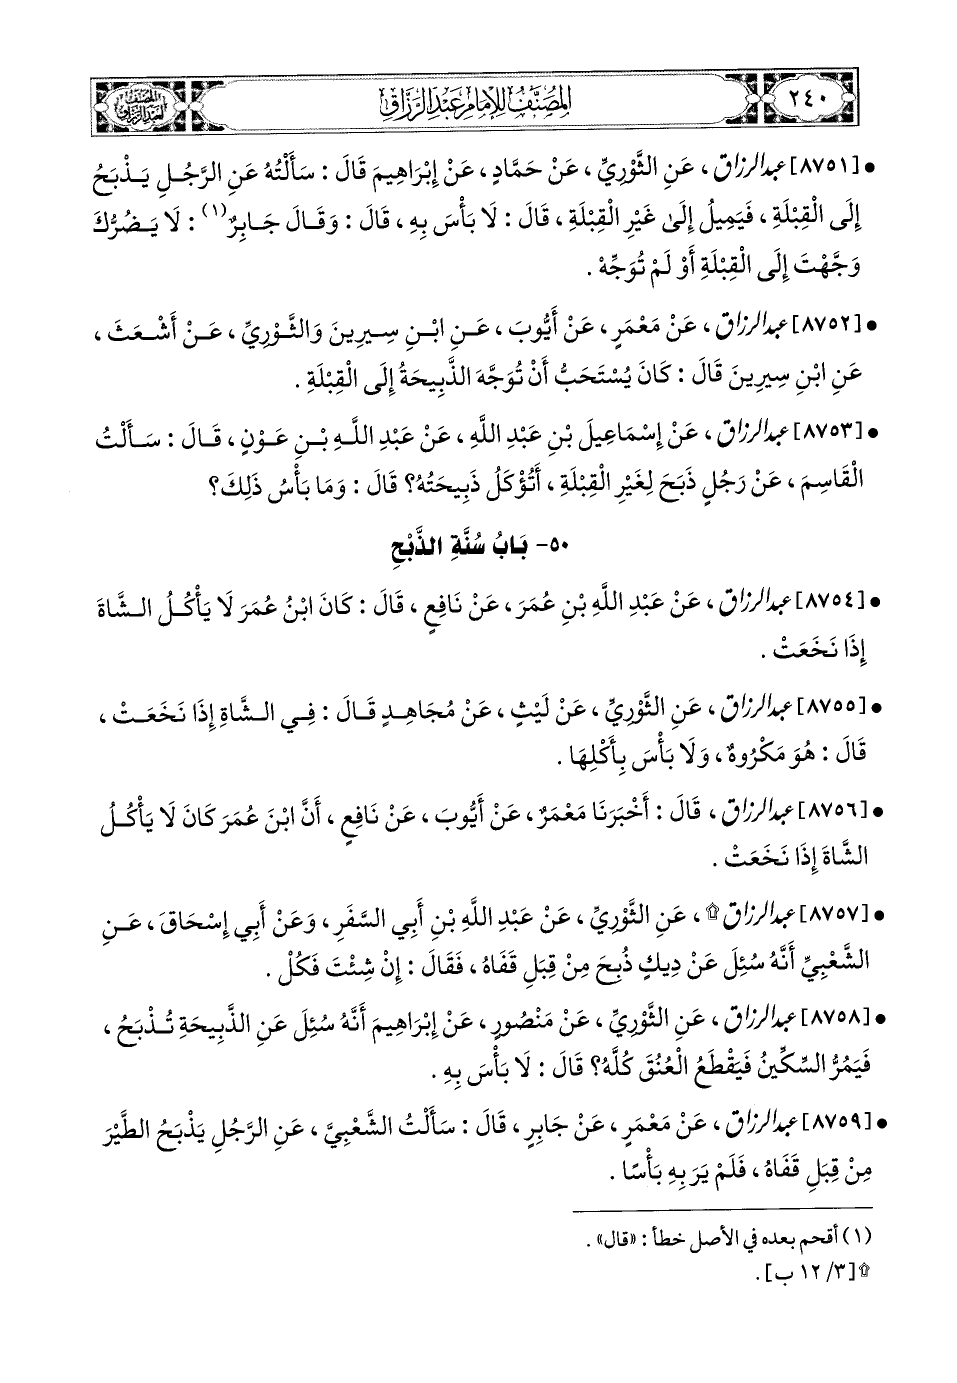 ٢٤٠
المصنف للإمام عبد الرزاق
المصنف لعبد الرزاق
• [٨٧٥١] عبد الرزاق، عَنِ الثَّوْرِيِّ، عَنْ حَمَّادٍ، عَنْ إِبْرَاهِيمَ قَالَ: سَأَلْتُهُ عَنِ الرَّجُلِ يَذْبَحُ
إِلَى الْقِبْلَةِ، فَيَمِيلُ إِلَىٰ غَيْرِ الْقِبْلَةِ، قَالَ: لَا بَأْسَ بِهِ، قَالَ: وَقَالَ جَابِرٌ(١): لَا يَضُرُّكَ
وَجَّهْتَ إِلَى الْقِبْلَةِ أَوْ لَمْ تُوَجِّهْ.
• [٨٧٥٢] عبد الرزاق، عَنْ مَعْمَرٍ، عَنْ أَيُّوبَ، عَنِ ابْنِ سِيرِينَ وَالثَّوْرِيِّ، عَنْ أَشْعَثَ،
عَنِ ابْنِ سِيرِينَ قَالَ: كَانَ يُسْتَحَبُّ أَنْ تُوَجَّهَ الذَّبِيحَةُ إِلَى الْقِبْلَةِ.
• [٨٧٥٣] عبد الرزاق، عَنْ إِسْمَاعِيلَ بْنِ عَبْدِ اللَّهِ، عَنْ عَبْدِ اللَّهِ بْنِ عَوْنٍ، قَالَ: سَأَلْتُ
الْقَاسِمَ، عَنْ رَجُلٍ ذَبَحَ لِغَيْرِ الْقِبْلَةِ، أَتُؤْكَلُ ذَبِيحَتُهُ؟ قَالَ: وَمَا بَأْسُ ذَلِكَ؟
٥٠- بَابُ سُنَّةِ الذَّبْحِ
• [٨٧٥٤] عبد الرزاق، عَنْ عَبْدِ اللَّهِ بْنِ عُمَرَ، عَنْ نَافِعٍ، قَالَ: كَانَ ابْنُ عُمَرَ لَا يَأْكُلُ الشَّاةَ
إِذَا نَخَعَتْ.
• [٨٧٥٥] عبد الرزاق، عَنِ الثَّوْرِيِّ، عَنْ لَيْثٍ، عَنْ مُجَاهِدٍ قَالَ: فِي الشَّاةِ إِذَا نَخَعَتْ،
قَالَ: هُوَ مَكْرُوهٌ، وَلَا بَأْسَ بِأَكْلِهَا.
• [٨٧٥٦] عبد الرزاق، قَالَ: أَخْبَرَنَا مَعْمَرٌ، عَنْ أَيُّوبَ، عَنْ نَافِعٍ، أَنَّ ابْنَ عُمَرَ كَانَ لَا يَأْكُلُ
الشَّاةَ إِذَا نَخَعَتْ.
• [٨٧٥٧] عبد الرزاق۩، عَنِ الثَّوْرِيِّ، عَنْ عَبْدِ اللَّهِ بْنِ أَبِي السَّفَرِ، وَعَنْ أَبِي إِسْحَاقَ، عَنِ
الشَّعْبِيِّ أَنَّهُ سُئِلَ عَنْ دِيكٍ ذُبِحَ مِنْ قِبَلِ قَفَاهُ، فَقَالَ: إِنْ شِئْتَ فَكُلْ.
• [٨٧٥٨] عبد الرزاق، عَنِ الثَّوْرِيِّ، عَنْ مَنْصُورٍ، عَنْ إِبْرَاهِيمَ أَنَّهُ سُئِلَ عَنِ الذَّبِيحَةِ تُذْبَحُ،
فَيَمُرُّ السِّكِّينُ فَيَقْطَعُ الْعُنُقَ كُلَّهُ؟ قَالَ: لَا بَأْسَ بِهِ.
• [٨٧٥٩] عبد الرزاق، عَنْ مَعْمَرٍ، عَنْ جَابِرٍ، قَالَ: سَأَلْتُ الشَّعْبِيَّ، عَنِ الرَّجُلِ يَذْبَحُ الطَّيْرَ
مِنْ قِبَلِ قَفَاهُ، فَلَمْ يَرَ بِهِ بَأْسًا.
(١) أقحم بعده في الأصل خطأ: «قال».
۩[٣/ ١٢ ب].